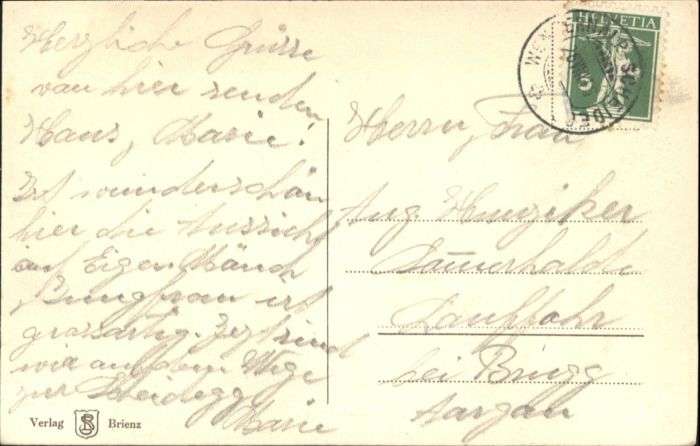 Herzliche Grüsse
von hier senden
Hans, Marie!
Ist wunderschön
hier die Aussicht
auf Eiger Mönch
Jungfrau ist
grossartig. Jetzt sind
wir auf dem Wege
zur Scheidegg
Marie
HELVETIA
5
Herrn, Frau
Aug. Hunziker
Lauffohr
bei Brugg
Aargau
Verlag Brienz